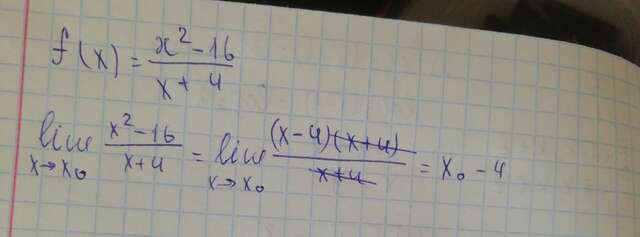 f(x) = \frac{x^2-16}{x+4}
lim_{x→x_0} \frac{x^2-16}{x+4} = lim_{x→x_0} \frac{(x-4)(x+4)}{x+4} = x_0 - 4